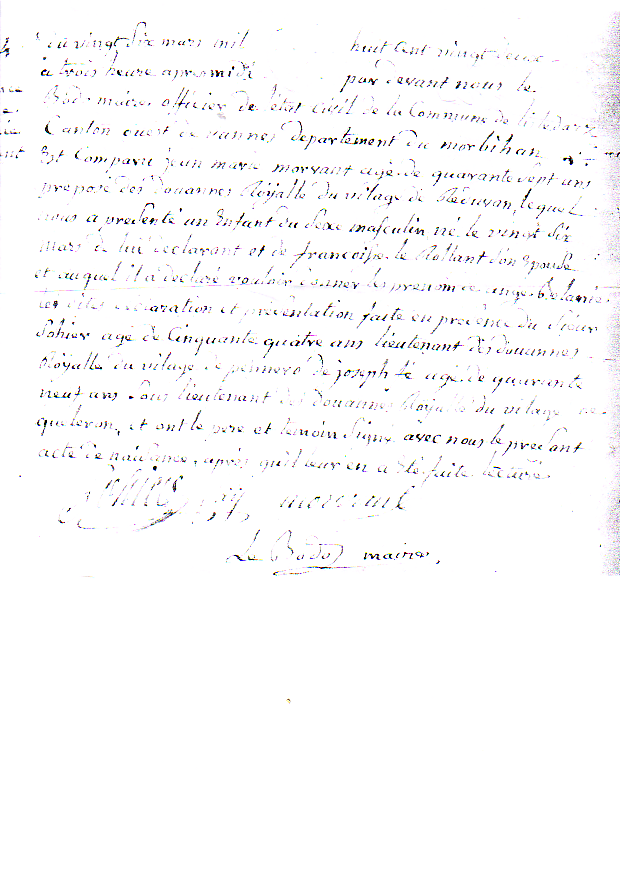 du vingt six mars mil huit cent vingt deux
à trois heure apresmidi par devant nous le
Bod. maire officier de l'état civil de la Commune de
Canton ouest de vannes departement du morbihan
Est Comparu jean marie morvant agé de quarante sept ans
preposé des Douannes Royalle du village de lequel
nous a presenté un Enfant du sexe masculin né le vingt six
mars de lui declarant et de francoise le Rollant son Epouse
et auquel il a declaré vouloir donner les prenom de ange
declaration et presentation faite en presence du sieur
Sohier agé de Cinquante quatre ans lieutenant des douannes
Royalle du village de pennero de joseph fé agé de quarante
neuf ans sous lieutenant des douannes Royalle du village de
queleron, et ont le pere et temoin signé avec nous le present
acte de naissance, après qu'il leur en a été faite lecture
morvant
Le Bodo maire,